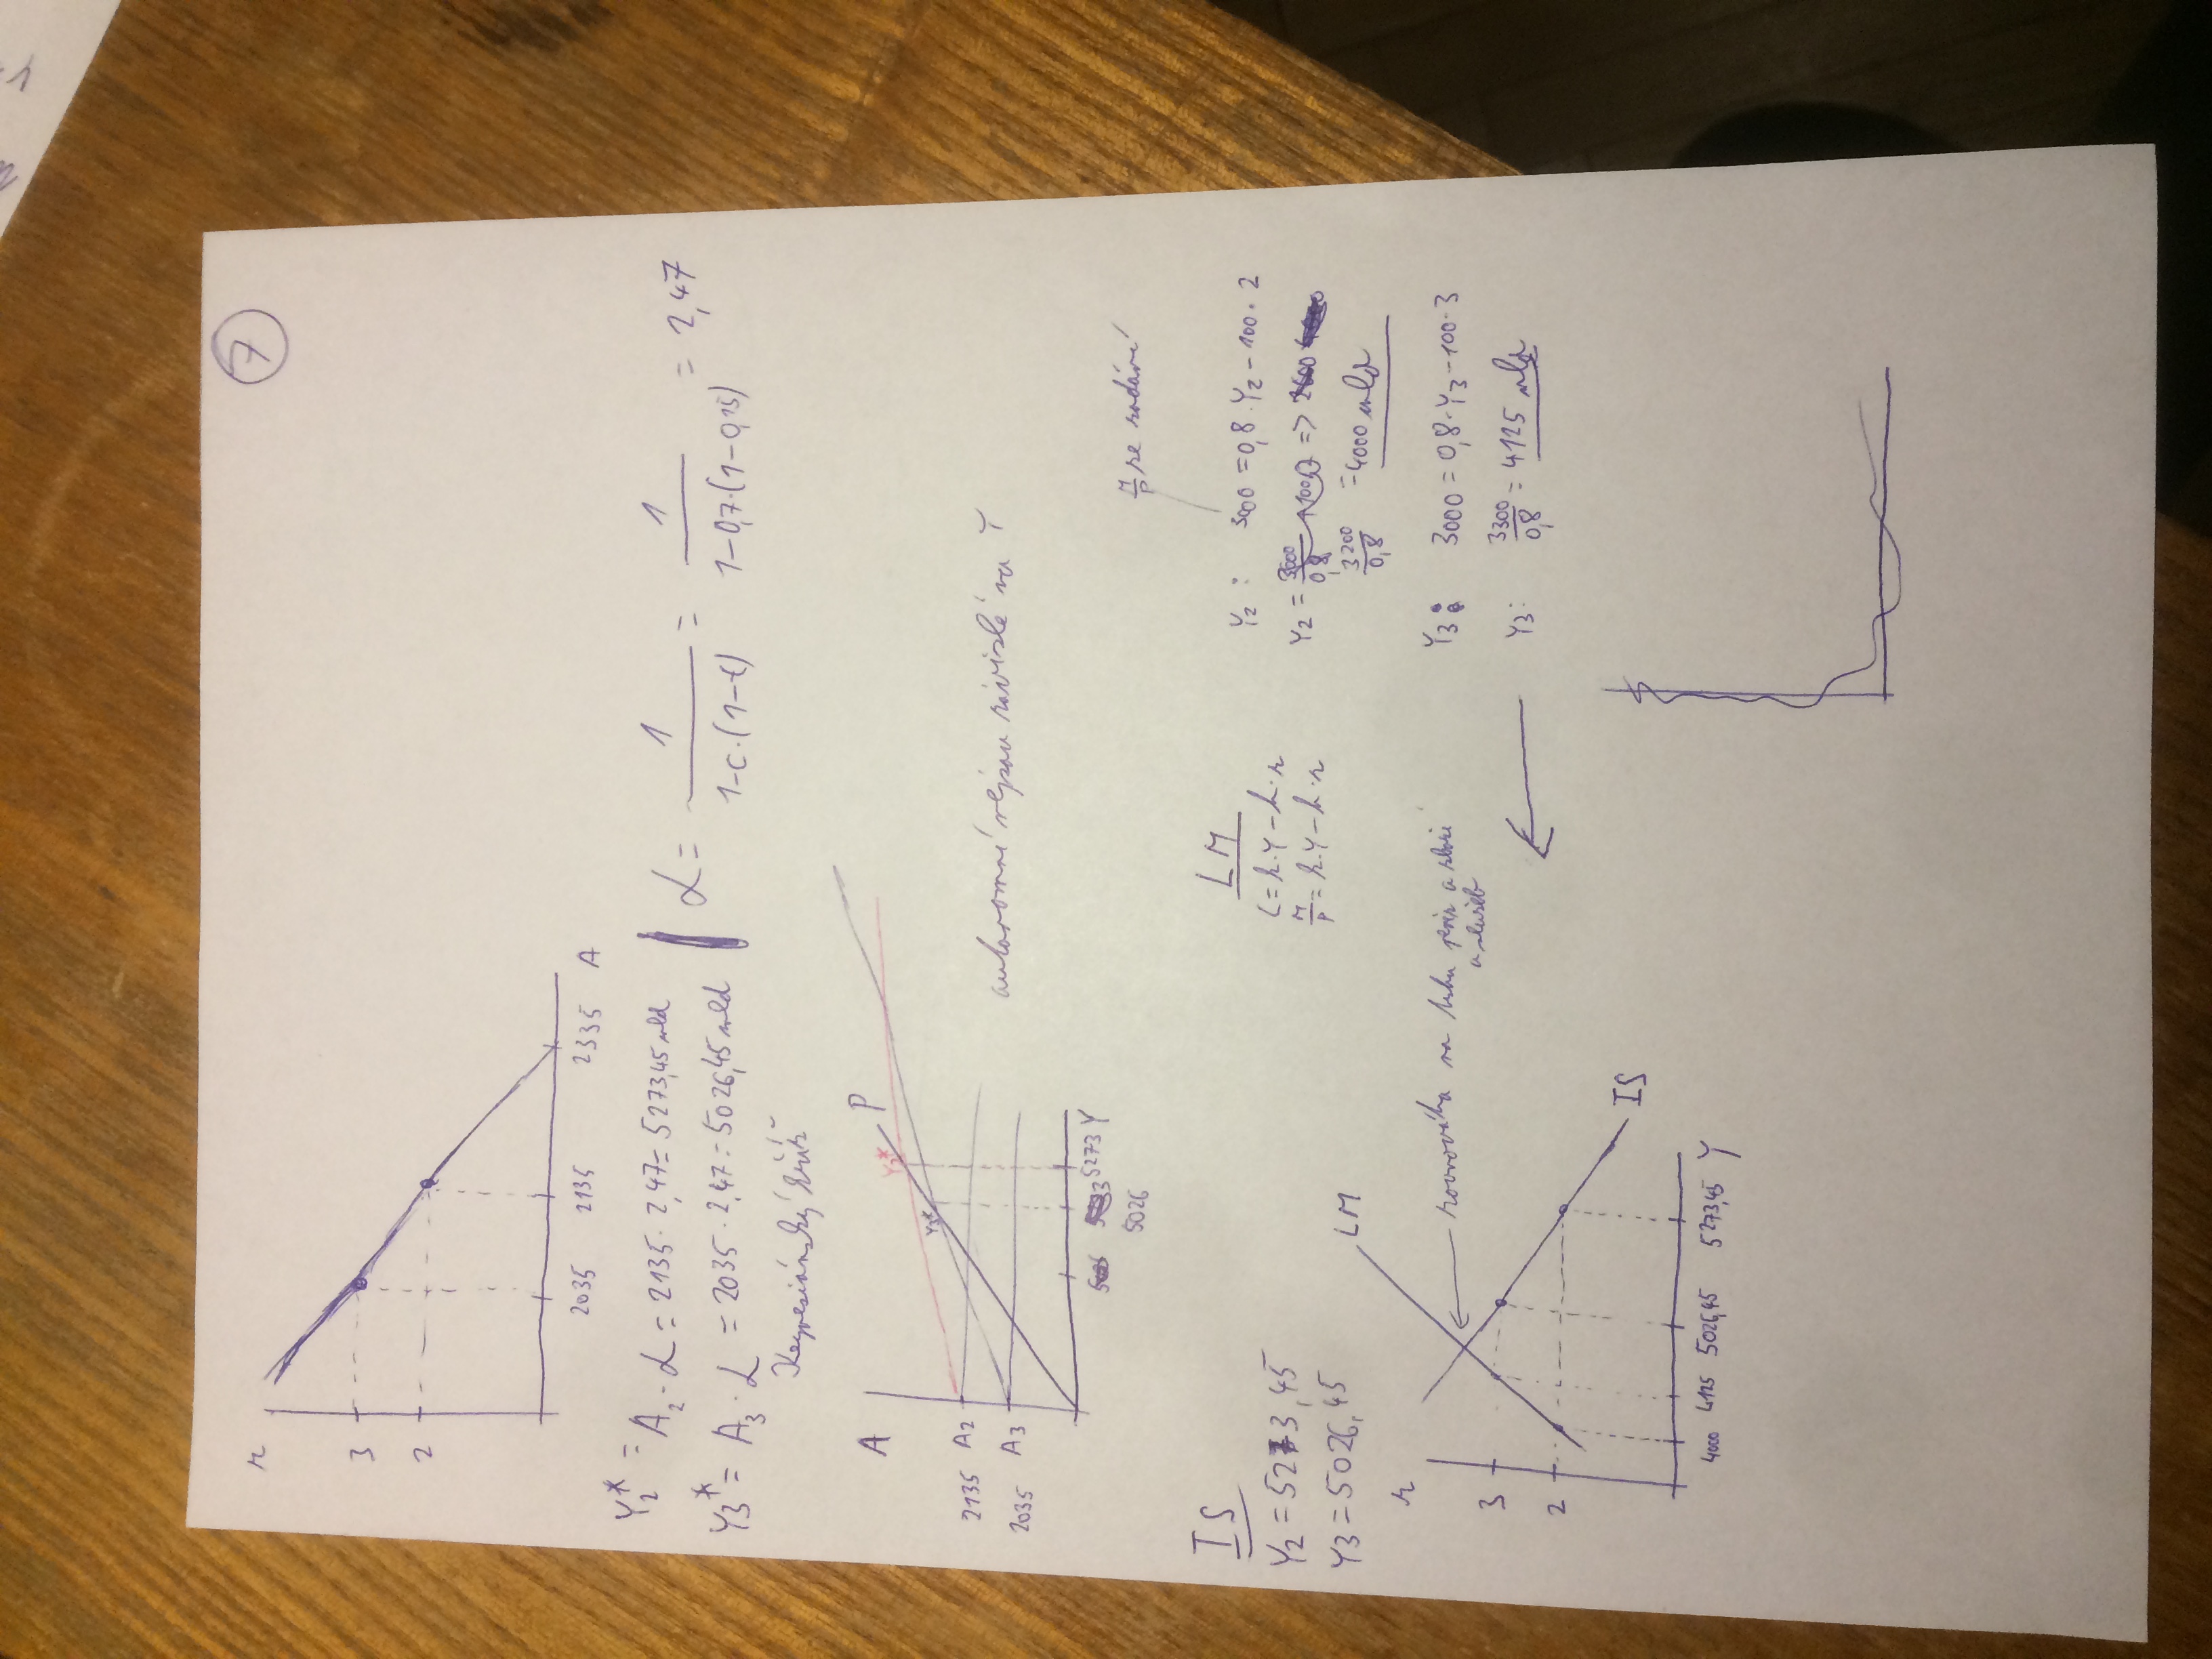 7
r
3
2
2035 2135 2335 A
Y₂* = A₂·α = 2135·2,47 = 5273,45 mld
Y₃* = A₃·α = 2035·2,47 = 5026,45 mld
α = 1/(1-c·(1-t)) = 1/(1-0,7·(1-0,15)) = 2,47
Keynesiánský kříž
A
P
Y₂*
Y₃*
2135 A₂
2035 A₃
5273 Y
5026
autonomní nejsou závislé na Y
M/P ze zadání
IS
Y₂ = 5273,45
Y₃ = 5026,45
LM
L = k·Y - h·r
M/P = k·Y - h·r
Y₂ : 3000 = 0,8·Y₂ - 100·2
Y₂ = 3000/0,8 =>
3200/0,8 = 4000 mld
Y₃ : 3000 = 0,8·Y₃ - 100·3
Y₃ : 3300/0,8 = 4125 mld
LM
r
rovnováha na trhu peněz a zboží
a služeb
3
2
IS
4000 4125 5026,45 5273,45 Y